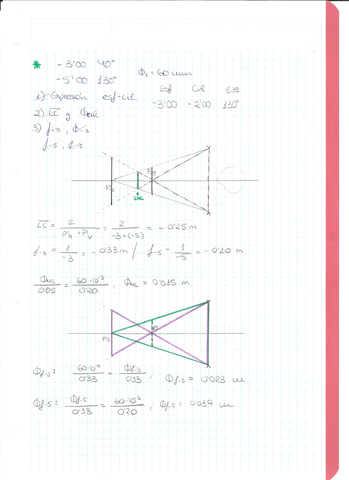 * -3'00 40°
-5'00 130° ΦL = 60 mm
1) Expresión esf-cil Esf Cil Eje
-3'00 -2'00 130°
2) CC y Φcmc
3) f-3, Φf-3
f-5, Φf-5
CMC
CC = 2 / = 2/-3+(-5) = -0'25 m
f-3 = 1/-3 = -0'33 m / f-5 = 1/-5 = -0'20 m
Φmc/0'05 = 60·10⁻³/0'20, Φmc = 0'015 m
Φf-3: 60·10⁻³/0'33 = Φf-3/0'13, Φf-3 = 0'023 m
Φf-5: Φf-5/0'13 = 60·10⁻³/0'20, Φf-5 = 0'039 m